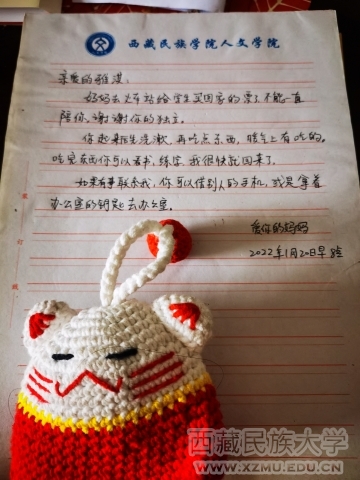 西藏民族学院人文学院
亲爱的雅淇:
妈妈去火车站给学生买回家的票了,不能一直
陪你,谢谢你的独立。
你起来后先洗漱,再吃点东西,暖气上有吃的。
吃完东西你可以看书、练字,我很快就回来了。
如果有事联系我,你可以借别人的手机,或是拿着
办公室的钥匙去办公室。
爱你的妈妈
2022年1月20日早
装
订
线
西藏民族大学
WWW.XZMU.EDU.CN